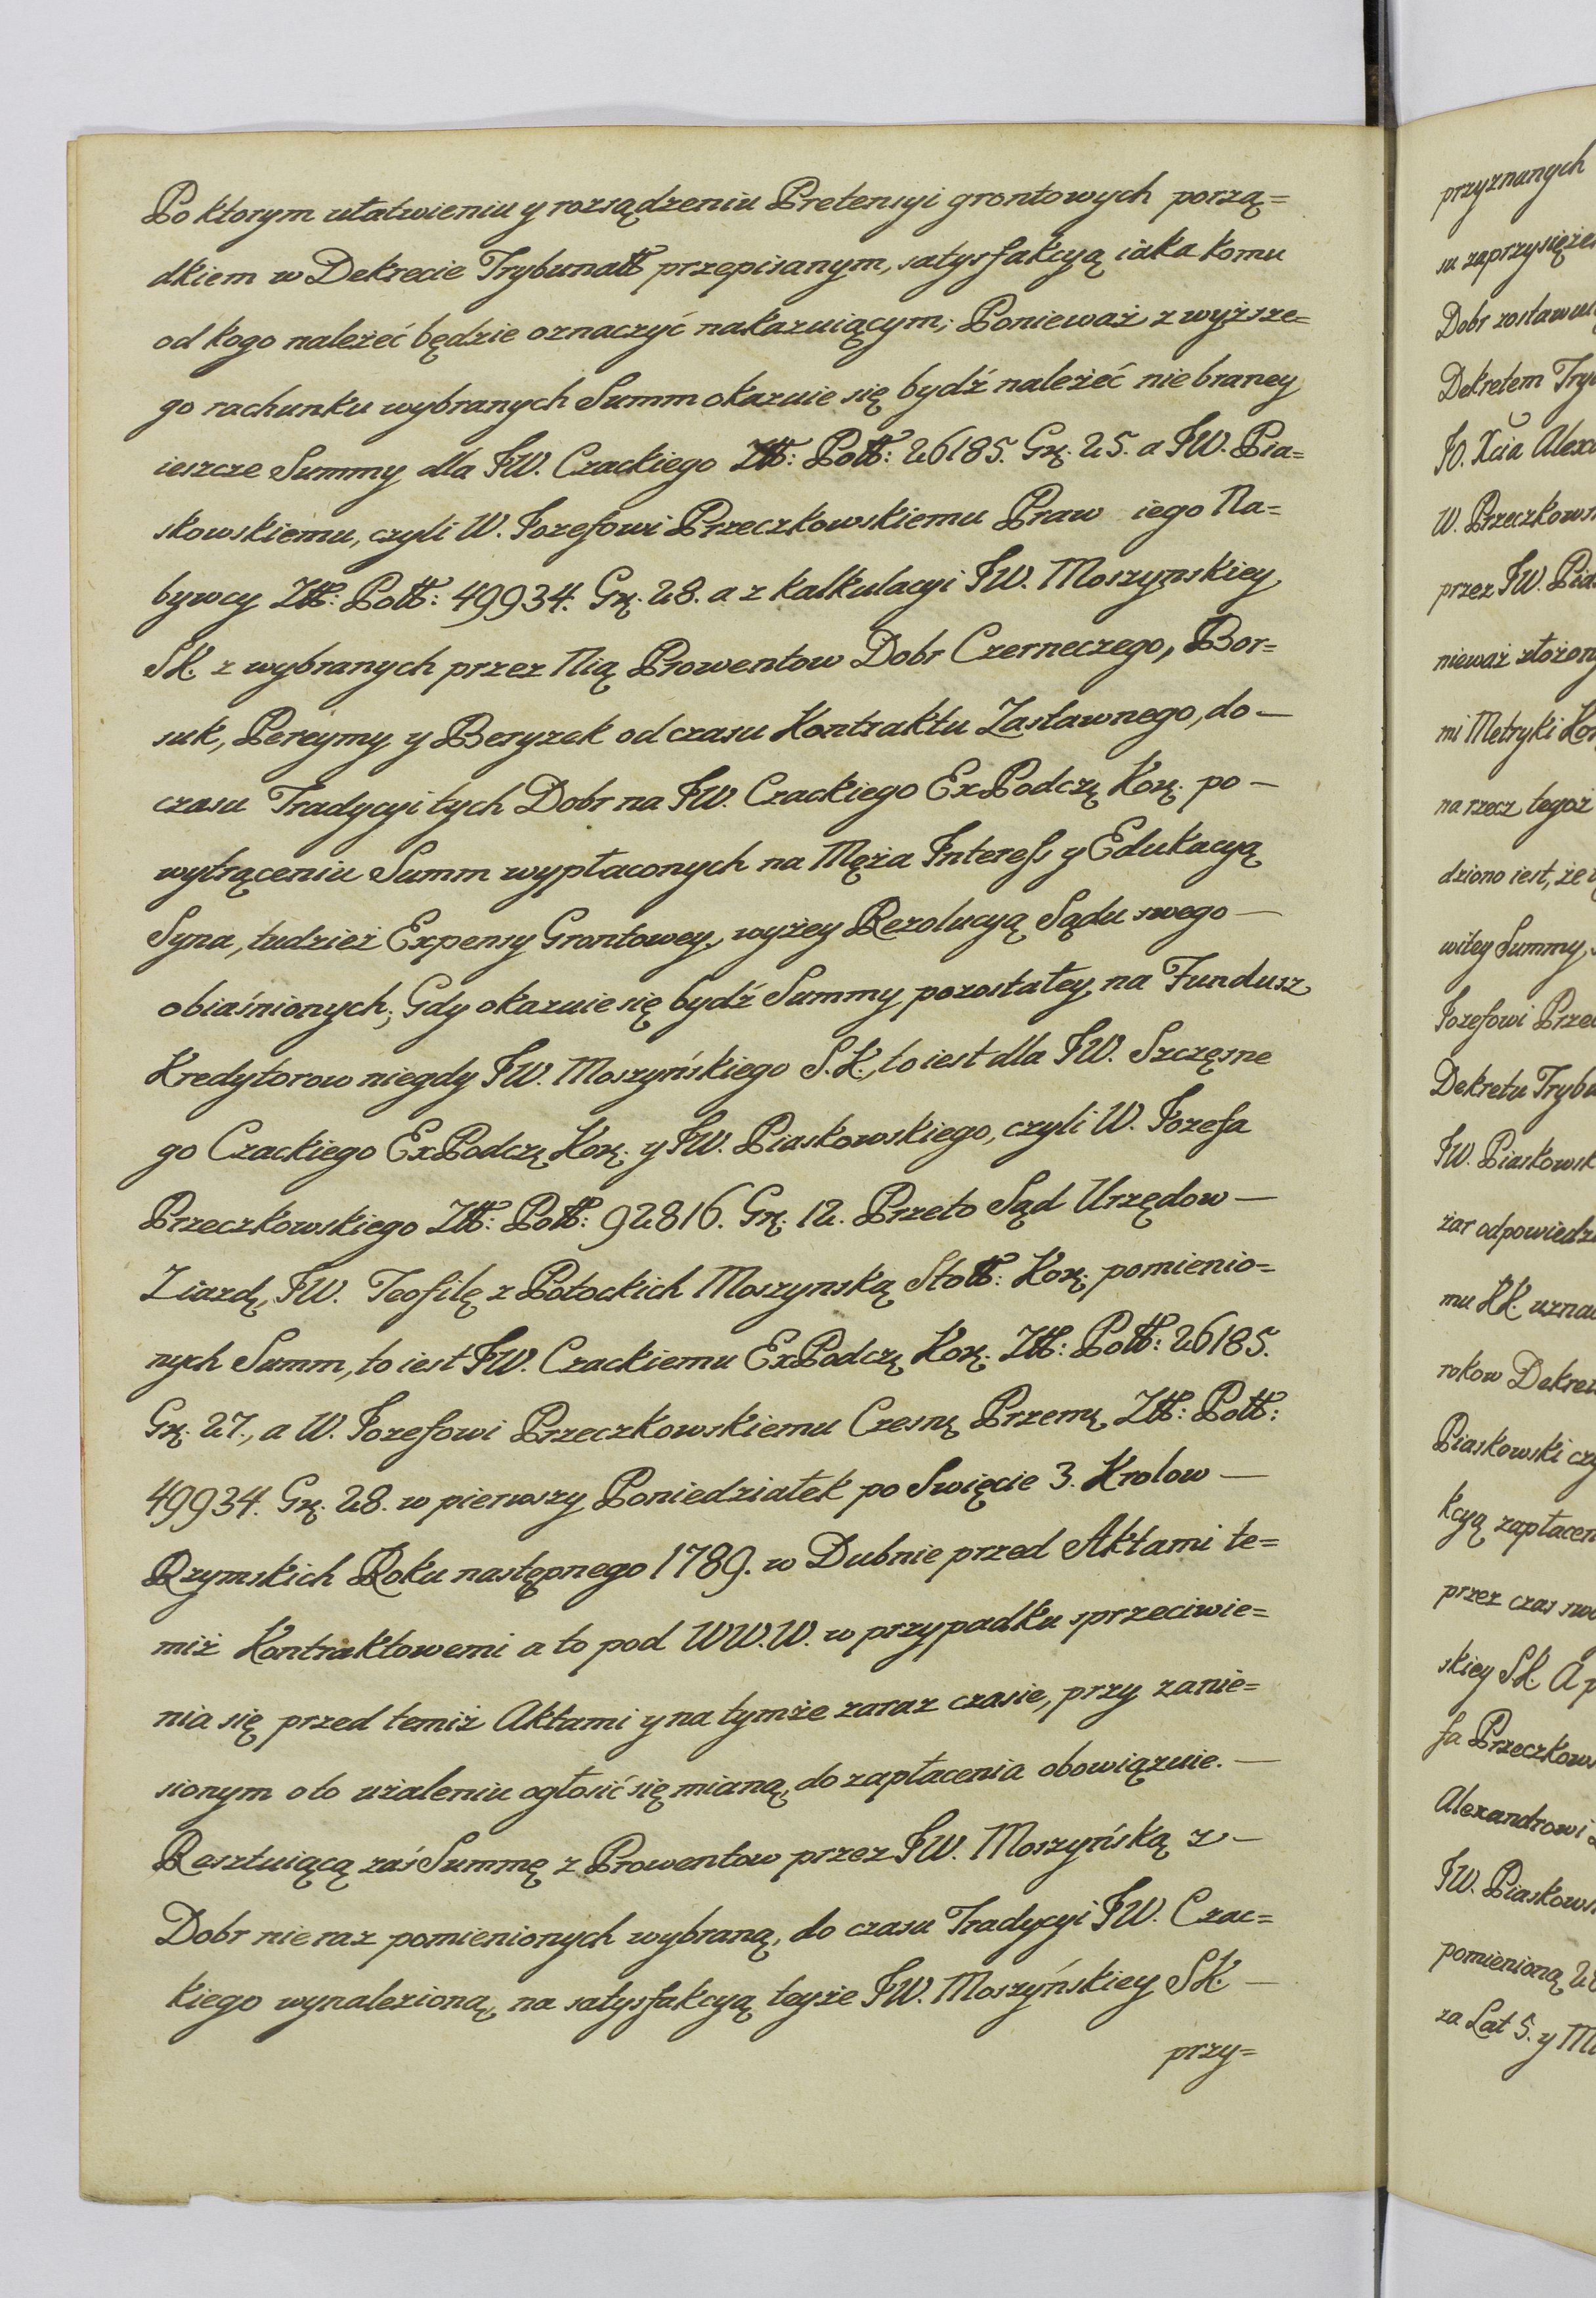 Po ktorym ułatwieniu y rozsądzeniu Pretensyi grontowych porzą=
dkiem w Dekrecie Trybunałł przepisanym, satysfakcyą iaka komu
od kogo należeć będzie oznaczyć nakazuiącym; Ponieważ z wyższe=
go rachunku wybranych Summ okazuie się bydź należeć nie braney
ieszcze Summy dla JW. Czackiego Złł: Połł: 26185. Gr. 25. a JW. Pia=
skowskiemu, czyli W. Jozefowi Przeczkowskiemu Praw iego Na=
bywcy Złł: Połł: 49934. Gr. 28. a z kalkulacyi JW. Moszynskiey
SK. z wybranych przez Nią Prowentow Dobr Czerneczego, Bor=
suk, Pereymy y Beryzek od czasu Kontraktu Zastawnego, do —
czasu Tradycyi tych Dobr na JW. Czackiego ExPodcz. Kor. po —
wytrąceniu Summ wypłaconych na Męża Interess y Edukacyą
Syna, tudzież Expensy Grontowey, wyżey Rezolucyą Sądu swego —
obiaśnionych; Gdy okazuie się bydź Summy pozostałey na Fundusz
Kredytorow niegdy JW. Moszyńskiego S.K., to iest dla JW. Szczęsne
go Czackiego ExPodcz. Kor. y JW. Piaskowskiego, czyli W. Jozefa
Przeczkowskiego Złł: Połł: 92816. Gr. 12. Przeto Sąd Urzędow —
Ziazd, JW. Teofilę z Potockich Moszynską Stołł: Kor. pomienio=
nych Summ, to iest JW. Czackiemu ExPodcz. Kor. Złł: Połł: 26185.
Gr. 27., a W. Jozefowi Przeczkowskiemu Czesn. Przem. Złł: Połł:
49934. Gr. 28. w pierwszy Poniedziałek po Swięcie 3. Krolow —
Rzymskich Roku następnego 1789. w Dubnie przed Aktami te=
miż Kontraktowemi a to pod WW.W. w przypadku sprzeciwie=
nia się przed temiż Aktami y na tymże zaraz czasie, przy zanie=
sionym o to użaleniu ogłosić się mianą, do zapłacenia obowiązuie. —
Resztuiącą zaś Summę z Prowentow przez JW. Moszyńską z —
Dobr nie raz pomienionych wybraną, do czasu Tradycyi JW. Czac=
kiego wynalezioną, na satysfakcyą teyże JW. Moszyńskiey SK. —
przy=
przyznanych
su zaprzysięże
Dobr zostawu
Dekretem Try
JO. Xcia Alex
W. Przeczkows
przez JW. Pia
nieważ złożony
mi Metryki Ko
na rzecz tegoż
dziono iest, że
witey Summy,
Jozefowi Prze
Dekretu Trybu
JW. Piaskowsk
żar odpowiedz
mu uzna
rokow Dekre
Piaskowski czy
kcyą zapłacen
przez czas swo
skiey SK. A p
fa Przeczkows
Alexandrowi
JW. Piaskows
pomienioną
za Lat 5. y M